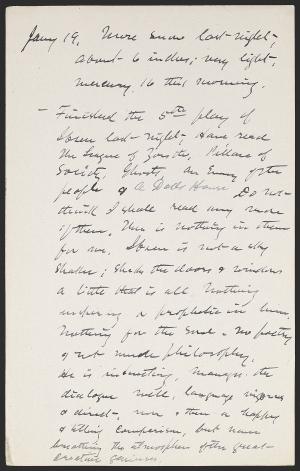 Jany 19. More snow last night,
about 6 inches; very light,
mercury 16 this morning.
— Finished the 5th play of
Ibsen last night, have read
The League of Youth, Pillars of
Society, Ghosts, an Enemy of the
people & A Dolls House Do not
think I shall read any more
of them. There is nothing in them
for me. Ibsen is not a sky
shaker; shakes the doors & windows
a little that is all. Nothing
inspiring or prophetic in him.
Nothing for the soul & no poetry
& not much philosophy.
He is interesting, manages the
dialogue well, language vigorous
& direct, now & then a happy
& telling comparison, but never
breathing the atmosphere of the great
creative geniuses.